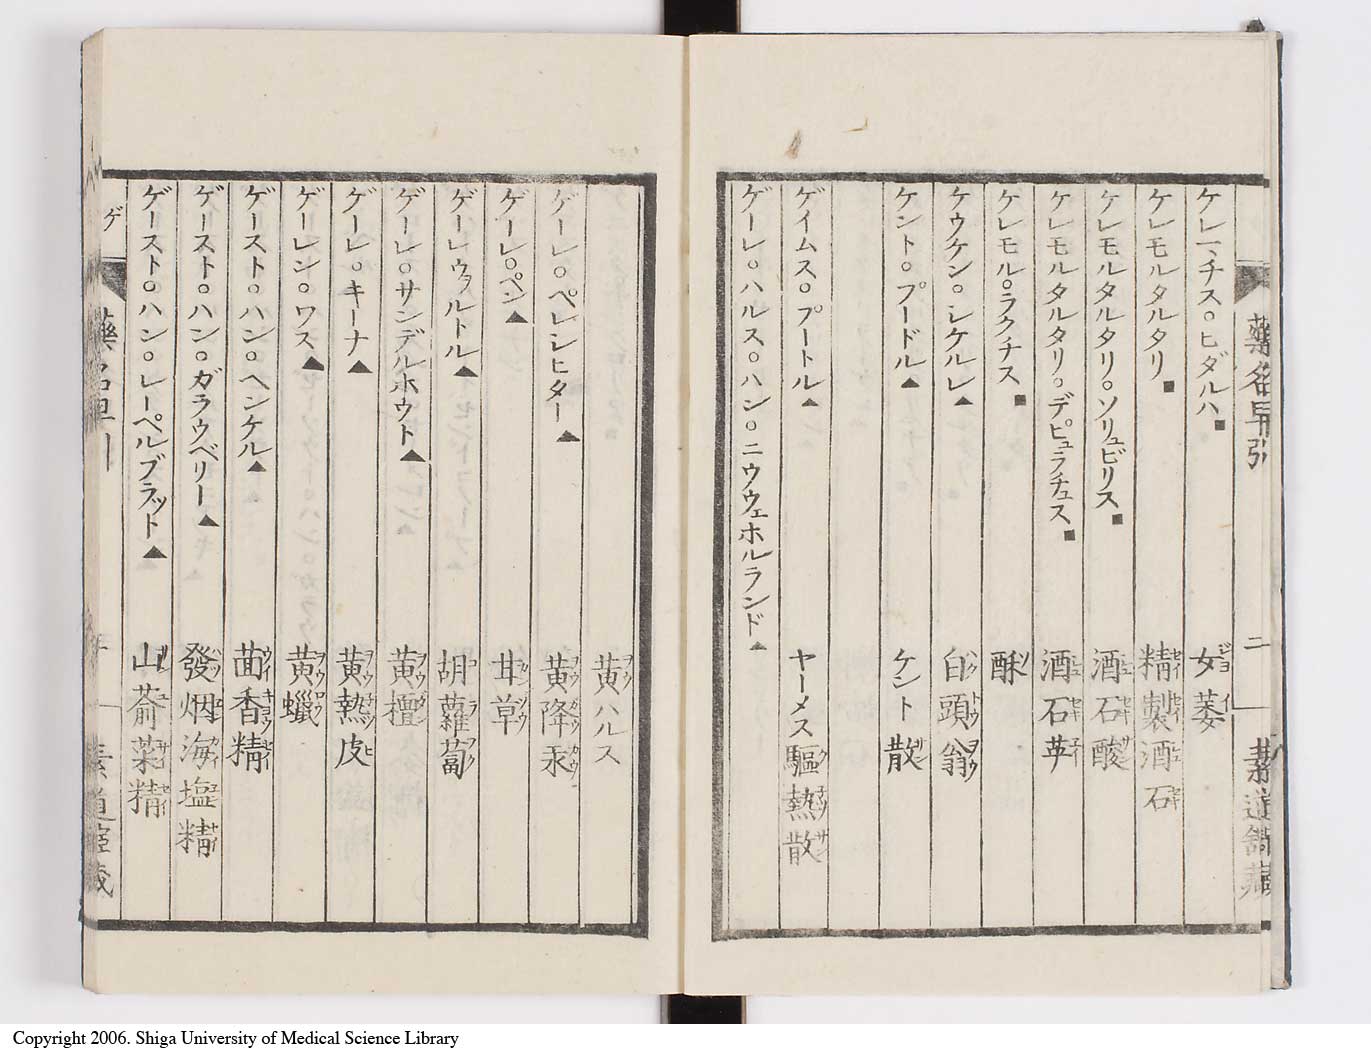 藥名早引
二
素道舘藏
ケレマチス○ヒダルハ■ 女萎
ケレモルタルタリ■ 精製酒石
ケレモルタルタリ○ソリュビリス■ 酒石酸
ケレモルタルタリ○デピュラチュス■ 酒石英
ケレモル○ラクチス■ 酥
ケウケン○シケルレ▲ 白頭翁
ケント○プードル▲ ケント散
ゲイムス○プートル▲ ヤーメス驅熱散
ゲーレ○ハルス○ハン○ニウウェホルランド▲
黄ハルス
ゲーレ○ペレシヒター▲ 黄降汞
ゲーレ○ペン▲ 甘草
ゲーレウァルトル▲ 胡蘿蔔
ゲーレ○サンデルホウト▲ 黄檀
ゲーレ○キーナ▲ 黄熱皮
ゲーレン○ワス▲ 黄蠟
ゲースト○ハン○ヘンケル▲ 茴香精
ゲースト○ハン○ガラウベリー▲ 發烟海塩精
ゲースト○ハン○レーペルブラット▲ 山萮菜精
ゲ
藥名早引